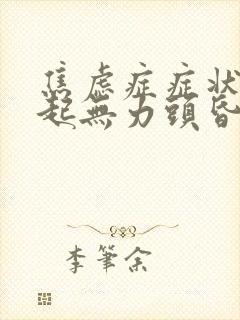 焦虑症症状
起無力頭昏
李筆余